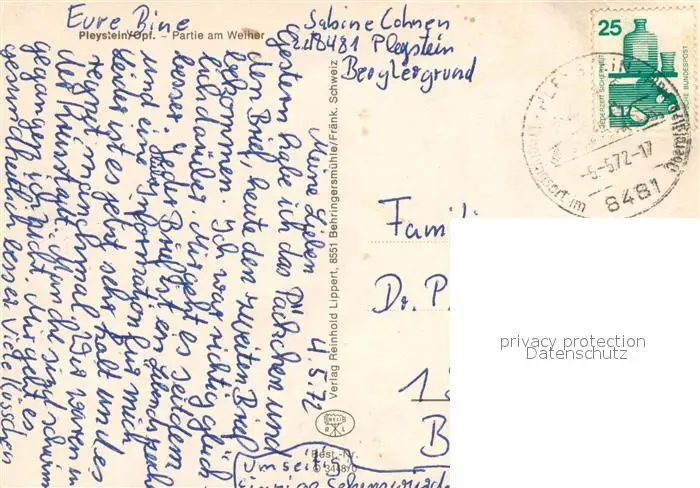 Eure Bine
Pleystein/Opf. – Partie am Weiher
Sabine Cohnen
zzt 8481 Pleystein
Berglergrund
25
JEDERZEIT SICHERHEIT
DEUTSCHE BUNDESPOST
-5-5.72-17
8481
Meine Lieben 4.5.72
Gestern habe ich das Päckchen und
den Brief, heute den zweiten Brief
bekommen. Ich war richtig glück
lich darüber. Mir geht es seitdem
besser. Jeder Brief ist ein Lendepunkt
und eine Information für mich
leider ist es jetzt sehr kalt und es
regnet manchmal. Wir waren in
der Kunstausst. Manche sind schwim
gegangen ich nicht. Mir geht es
gesundheitlich besser. Viele Küsschen
Verlag Reinhold Lippert, 8551 Behringersmühle/Fränk. Schweiz
R L
Best.-Nr.
O 3448/0
Famili
Dr. P.
1
B
Umseitig
einzige Sehenswürd
privacy protection
Datenschutz